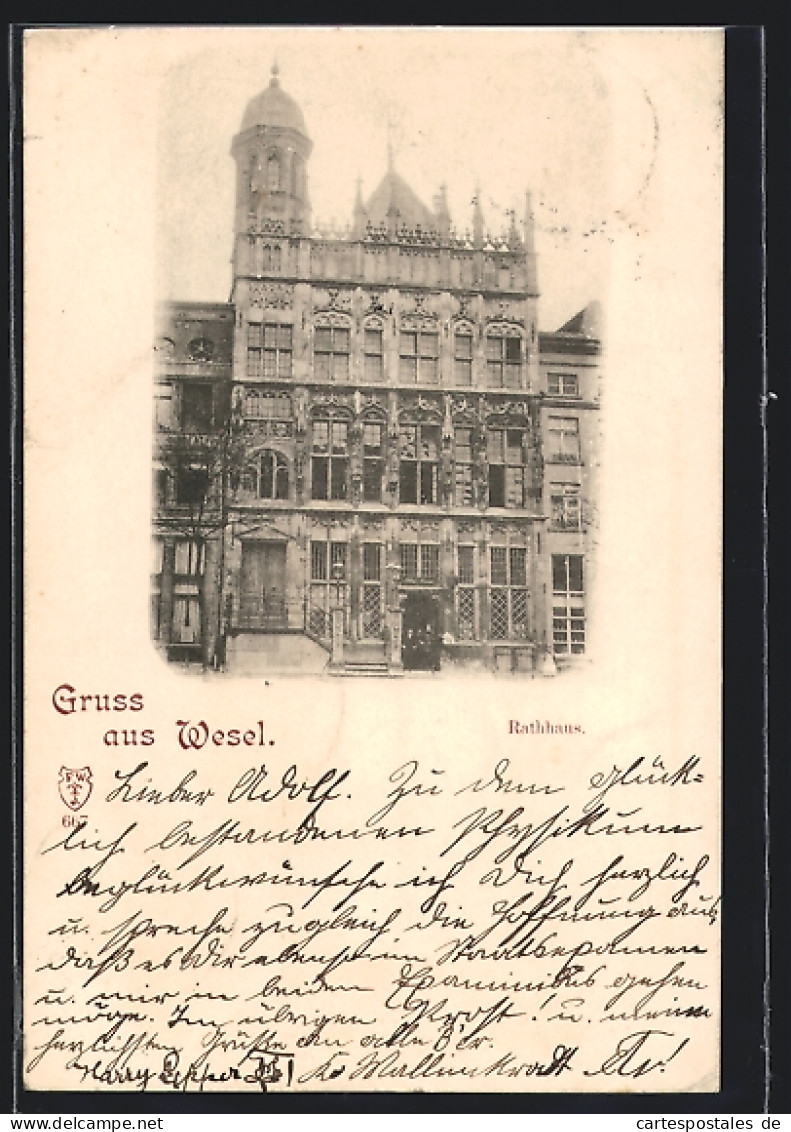 Gruss
aus Wesel.
Rathhaus.
F W
T
667
Lieber Adolf. Zu dem glück-
lich bestandenen Physikum
beglückwünsche ich Dich herzlich
u. spreche zugleich die Hoffnung aus,
daß es Dir ebenso im Staatsexamen
u. mir in beiden Examinibus gehen
möge. Im übrigen Prost! u. meine
herzlichsten Grüße an alle
Harry K. Wallenkradt
www.cartespostales.de